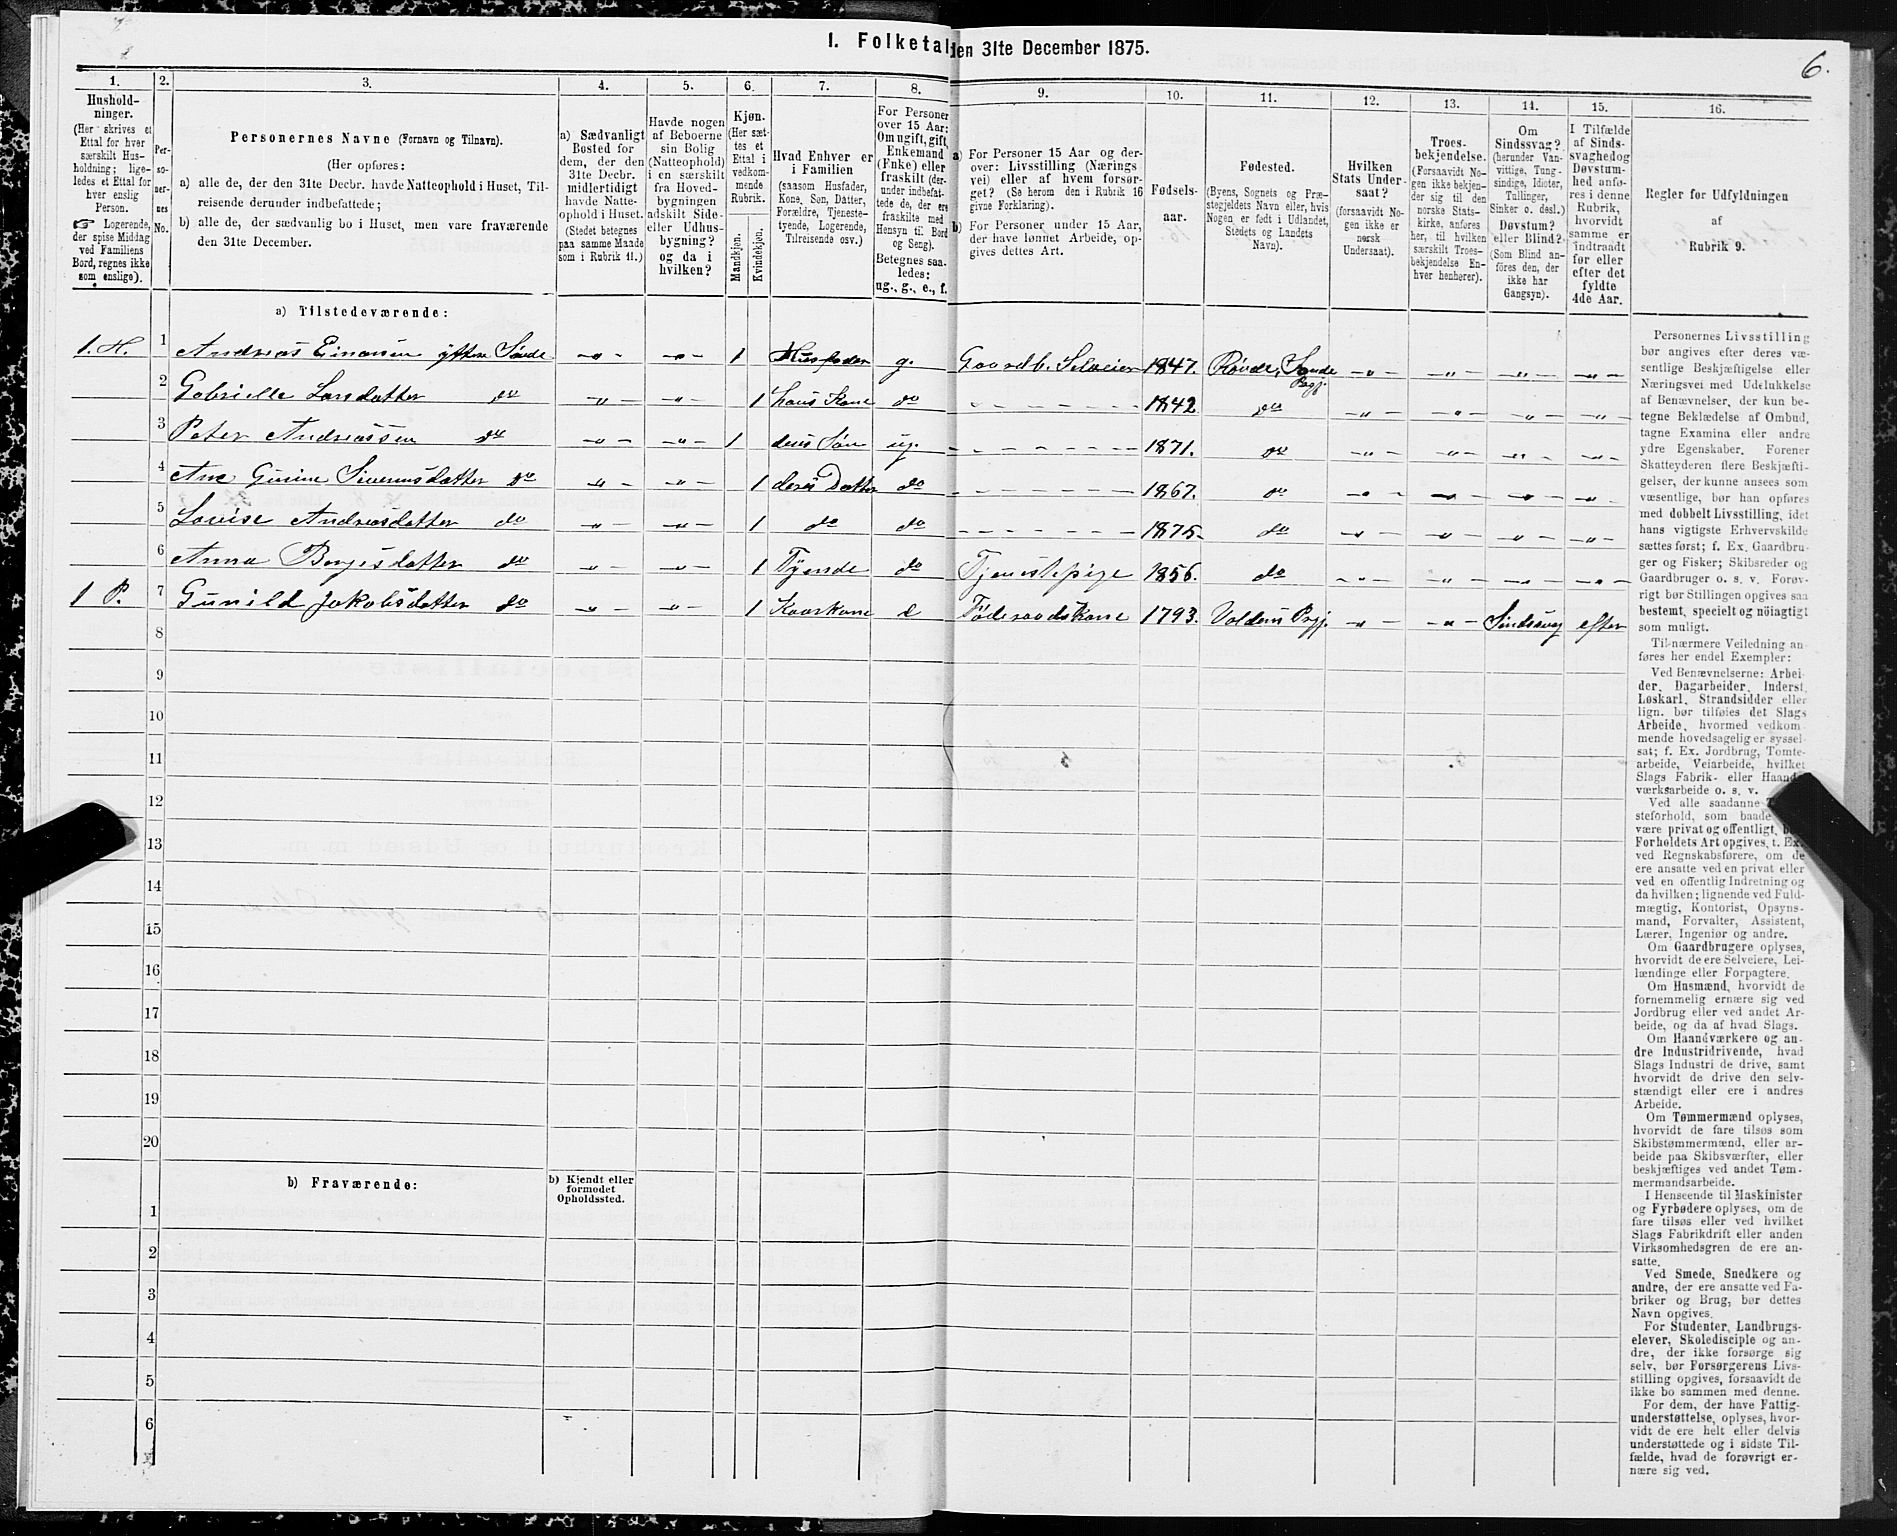 1. Folketal den 31te December 1875.
6.
1.
2.
3.
4.
5.
6.
7.
8.
9.
10.
11.
12.
13.
14.
15.
16.
Hushold-
ninger.
(Her skrives et
Ettal for hver
særskilt Hus-
holdning; lige-
ledes et Ettal for
hver enslig
Person.
☞ Logerende,
der spise Middag
ved Familiens
Bord, regnes ikke
som enslige).
Per-
so-
ner-
nes
No.
Personernes Navne (Fornavn og Tilnavn).
(Her opføres:
a) alle de, der den 31te Decbr. havde Natteophold i Huset, Til-
reisende derunder indbefattede;
b) alle de, der sædvanlig bo i Huset, men vare fraværende
den 31te December.
a) Sædvanligt
Bosted for
dem, der den
31te Decbr.
midlertidigt
havde Natte-
ophold i Huset.
(Stedet betegnes
paa samme Maade
som i Rubrik 11.)
Havde nogen
af Beboerne
sin Bolig
(Natteophold)
i en særskilt
fra Hoved-
bygningen
adskilt Side-
eller Udhus-
bygning?
og da i
hvilken?
Kjøn.
(Her sæt-
tes et
Ettal i
vedkom-
mende
Rubrik.
Mandkjøn.
Kvindekjøn.
Hvad Enhver er
i Familien
(saasom Husfader,
Kone, Søn, Datter,
Forældre, Tjeneste-
tyende, Logerende,
Tilreisende osv.)
For Personer
over 15 Aar:
Om ugift, gift,
Enkemand
(Enke) eller
fraskilt (der-
under indbefat-
tede de, der ere
fraskilte med
Hensyn til Bord
og Seng).
Betegnes saa-
ledes:
ug., g., e., f.
a) For Personer 15 Aar og der-
over: Livsstilling (Nærings-
vei) eller af hvem forsør-
get? (Se herom den i Rubrik 16
givne Forklaring).
b) For Personer under 15 Aar,
der have lønnet Arbeide, op-
gives dettes Art.
Fødsels-
aar.
Fødested.
(Byens, Sognets og Præ-
stegjeldets Navn eller, hvis
Nogen er født i Udlandet,
Stedets og Landets
Navn).
Hvilken
Stats Under-
saat?
(forsaavidt No-
gen ikke er
norsk
Undersaat).
Troes-
bekjendelse.
(Forsaavidt No-
gen ikke bekjen-
der sig til den
norske Stats-
kirke, anføres
her, til hvilken
særskilt Troes-
bekjendelse En-
hver henhører).
Om
Sindssvag?
(herunder Van-
vittige, Tung-
sindige, Idioter,
Tullinger,
Sinker o. desl.)
Døvstum?
eller Blind?
(Som Blind an-
føres den, der
ikke har
Gangsyn).
I Tilfælde
af Sinds-
svaghed og
Døvstum-
hed anfø-
res i denne
Rubrik,
hvorvidt
samme er
indtraadt
før eller
efter det
fyldte
4de Aar.
Regler for Udfyldningen
af
Rubrik 9.
a) Tilstedeværende:
1. H. 1 Andreas Einarsen yttre Søvde -„- -„- 1 Husfader g. Gaardb. Selveier 1847. Røvde, Søvde Prgj. -„- -„- -„- -„-
2 Gabrielle Larsdatter do -„- -„- 1 hans Kone do - - - - - 1842 do -„- -„- -„- -„-
3 Peter Andreassen do -„- -„- 1 deres Søn ug. - - - - - 1871. do -„- -„- -„- -„-
4 Ane Gurine Siverinsdatter do -„- -„- 1 deres Datter do - - - - - 1867. do -„- -„- -„- -„-
5 Lovise Andreasdatter do -„- -„- 1 do do - - - - - 1875. do -„- -„- -„- -„-
6 Anna Borgesdatter do -„- -„- 1 Tyende do Tjenestepige 1856. do -„- -„- -„- -„-
1 P. 7 Gunild Jakobsdatter do -„- -„- 1 Kaarkone e Føderaadskone 1793. Voldens Prgj. -„- -„- Sindssvag efter
8
9
10
11
12
13
14
15
16
17
18
19
20
b) Fraværende:
b) Kjendt eller
formodet
Opholdssted.
1
2
3
4
5
6
Personernes Livsstilling
bør angives efter deres væ-
sentlige Beskjæftigelse eller
Næringsvei med Udelukkelse
af Benævnelser, der kun be-
tegne Beklædelse af Ombud,
tagne Examina eller andre
ydre Egenskaber. Forener
Skatteyderen flere Beskjæfti-
gelser, der kunne ansees som
væsentlige, bør han opføres
med dobbelt Livsstilling, idet
hans vigtigste Erhvervskilde
sættes først; f. Ex. Gaardbru-
ger og Fisker; Skibsreder og
Gaardbruger o. s. v. Forøv-
rigt bør Stillingen opgives saa
bestemt, specielt og nöiagtigt
som muligt.
Til nærmere Veiledning an-
føres her endel Exempler:
Ved Benævnelserne: Arbei-
der, Dagarbeider, Inderst,
Løskarl, Strandsidder eller
lign. bør tilføies det Slags
Arbeide, hvormed vedkom-
mende hovedsagelig er syssel-
sat; f. Ex. Jordbrug, Tomte-
arbeide, Veiarbeide, hvilket
Slags Fabrik- eller Haand-
værksarbeide o. s. v.
Ved alle saadanne
steforhold, som baade
være privat og offentligt,
Forholdets Art opgives, t. Ex.
ved Regnskabsførere, om de
ere ansatte ved en privat eller
ved en offentlig Indretning og
da hvilken; lignende ved Fuld-
mægtig, Kontorist, Opsyns-
mand, Forvalter, Assistent,
Lærer, Ingeniør og andre.
Om Gaardbrugere oplyses,
hvorvidt de ere Selveiere, Lei-
lændinge eller Forpagtere.
Om Husmænd, hvorvidt de
fornemmelig ernære sig ved
Jordbrug eller ved andet Ar-
beide, og da af hvad Slags.
Om Haandværkere og an-
dre Industridrivende, hvad
Slags Industri de drive, samt
hvorvidt de drive den selv-
stændigt eller ere i andres
Arbeide.
Om Tømmermænd oplyses,
hvorvidt de fare tilsøs som
Skibstømmermænd, eller ar-
beide paa Skibsværfter, eller
beskjæftiges ved andet Tøm-
mermandsarbeide.
I Henseende til Maskinister
og Fyrbødere oplyses, om de
fare tilsøs eller ved hvilket
Slags Fabrikdrift eller anden
Virksomhedsgren de ere an-
satte.
Ved Smede, Snedkere og
andre, der ere ansatte ved Fa-
briker og Brug, bør dettes
Navn opgives.
For Studenter, Landbrugs-
elever, Skoledisciple og an-
dre, der ikke forsørge sig
selv, bør Forsørgerens Livs-
stilling opgives, forsaavidt de
ikke bo sammen med denne.
For dem, der have Fattig-
understøttelse, oplyses, hvor-
vidt de ere helt eller delvis
understøttede og i sidste Til-
fælde, hvad de forøvrigt er-
nære sig ved.